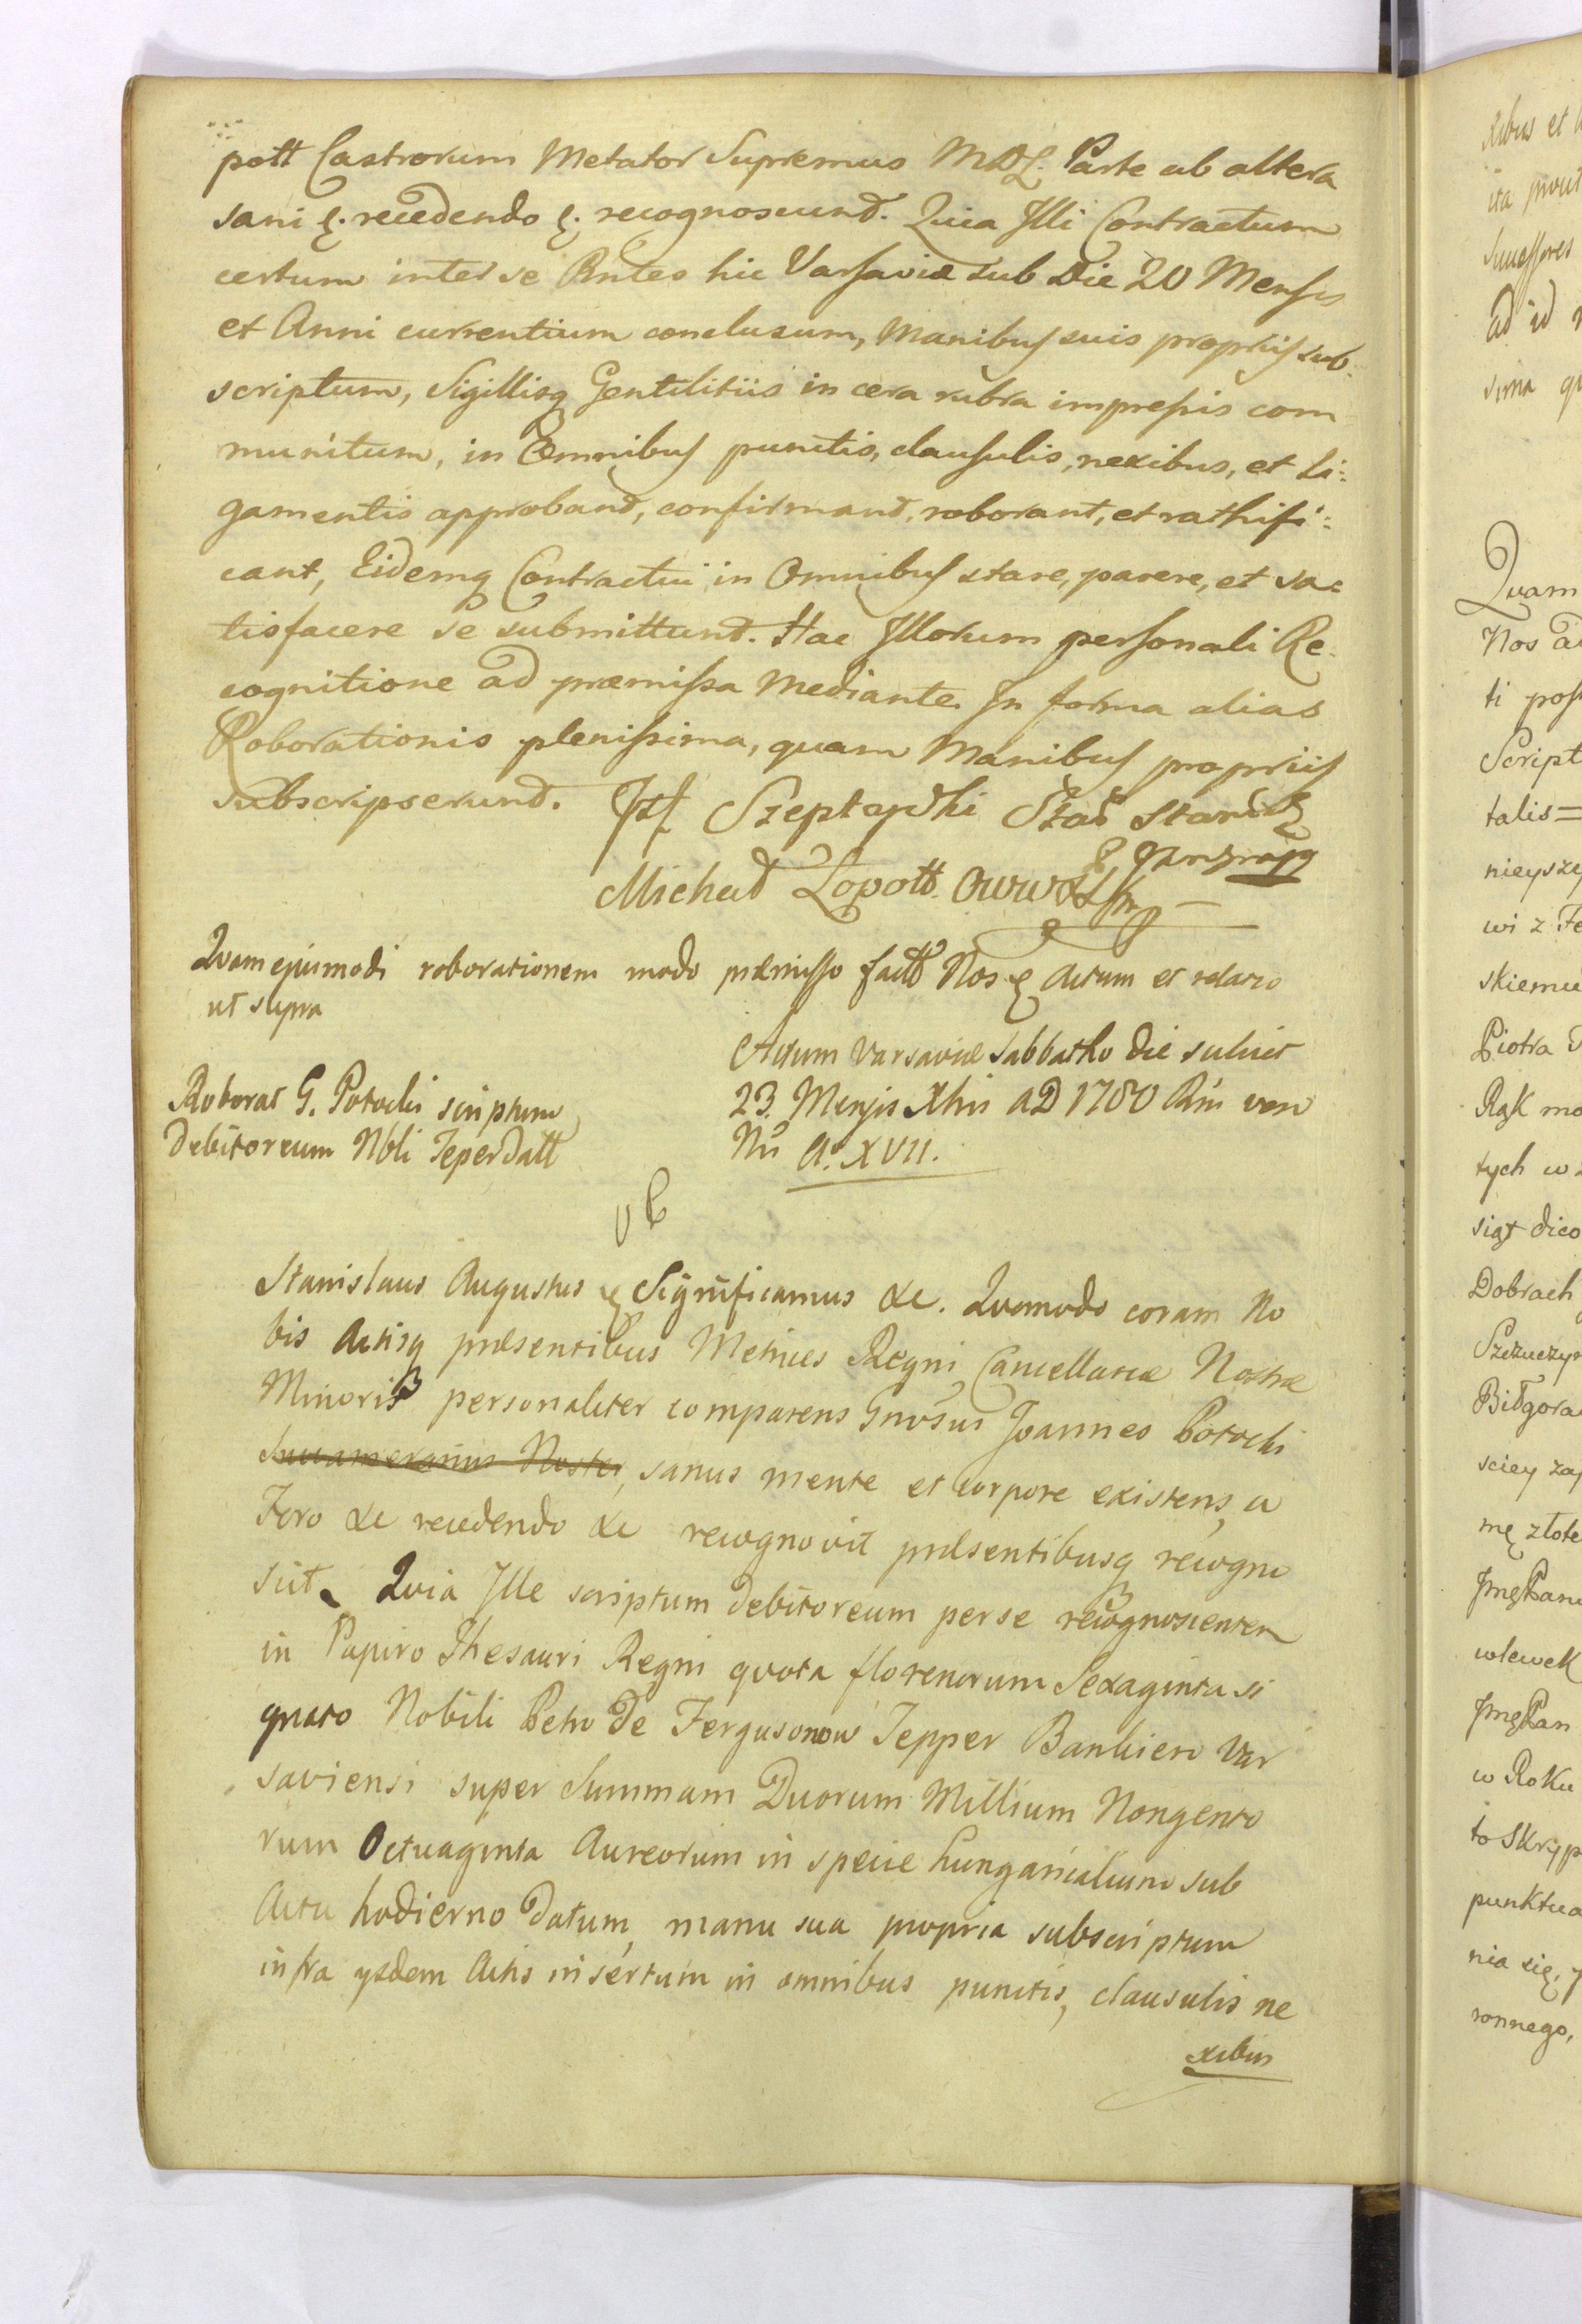 pott Castrorum Metator Supremus MDL. Parte ab altera
sani &. recedendo &. recognoscund. Quia Illi Contractum
certum inter se Rntes hic Varsaviæ sub Die 20 Mensis
et Anni currentium conclusum, Manibus suis propriis sub-
scriptum, Sigillisq Gentilitiis in cera rubra impressis com
munitum, in Omnibus punctis, clausulis, nexibus, et Li-
gamentis approband, confirmant, roborant, et rathifi-
cant, Eidemq Contractui in Omnibus stare, parere, et sa-
tisfacere se submittund. Hac Illorum personali Re-
cognitione ad præmissa Mediante. In forma alias
Roborationis plenissima, quam Manibus propriis
subscripserund.
Michał Łopott
Quam ejusmodi roborationem modo præmisso fact Nos & Actum et datum
ut supra
Actum Varsaviæ Sabbatho die scilicet
23. Mensis Xbris AD 1780 Rni vero
Nri A. XVII.
Roborat G. Potocki scriptum
debitoreum Nbli Teper datt
Stanislaus Augustus & Significamus &c. Quomodo coram No
bis Actisq præsentibus Metrices Regni Cancellariæ Nostræ
Minoris personaliter comparens Gnosus Joannes Potocki
Succamerarius Noster, sanus mente et corpore existens, a
Foro &c recedendo &c recognovit præsentibusq recogno
scit. Quia Ille scriptum debitoreum per se recognoscentem
in Papiro Thesauri Regni quota florenorum Sexaginta si
gnato Nobili Petro De Fergusonow Tepper Bankiero Var
saviensi super Summam Duorum Millium Nongento
rum Octuaginta Aureorum in specie hungaricalium sub
Actu hodierno datum, manu sua propria subscriptum
infra ijsdem Actis insertum in omnibus punctis, clausulis ne
xibus